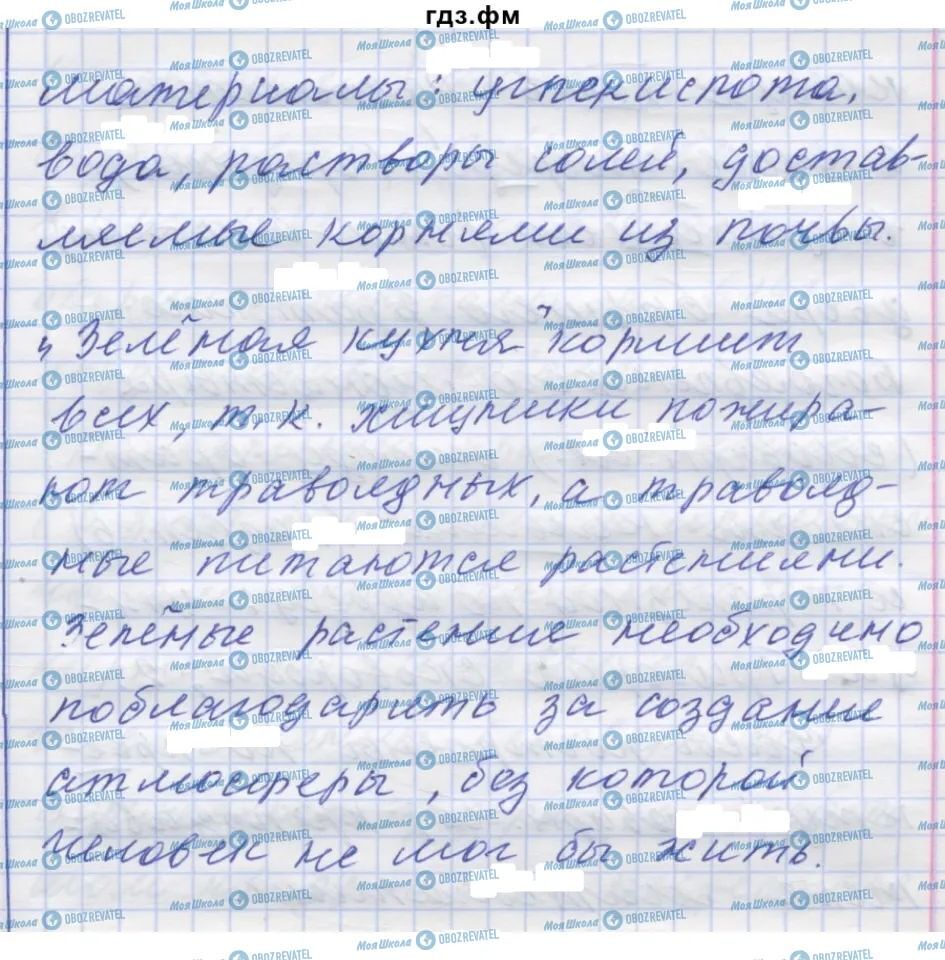 гдз.фм
материалы: углекислота,
вода, растворы солей, достав-
ляемые корнями из почвы.
"Зелёная кухня" кормит
всех, т.к. хищники пожира-
ют травоядных, а травояд-
ные питаются растениями.
Зелёные растение необходимо
поблагодарить за создание
атмосферы, без которой
человек не мог бы жить.